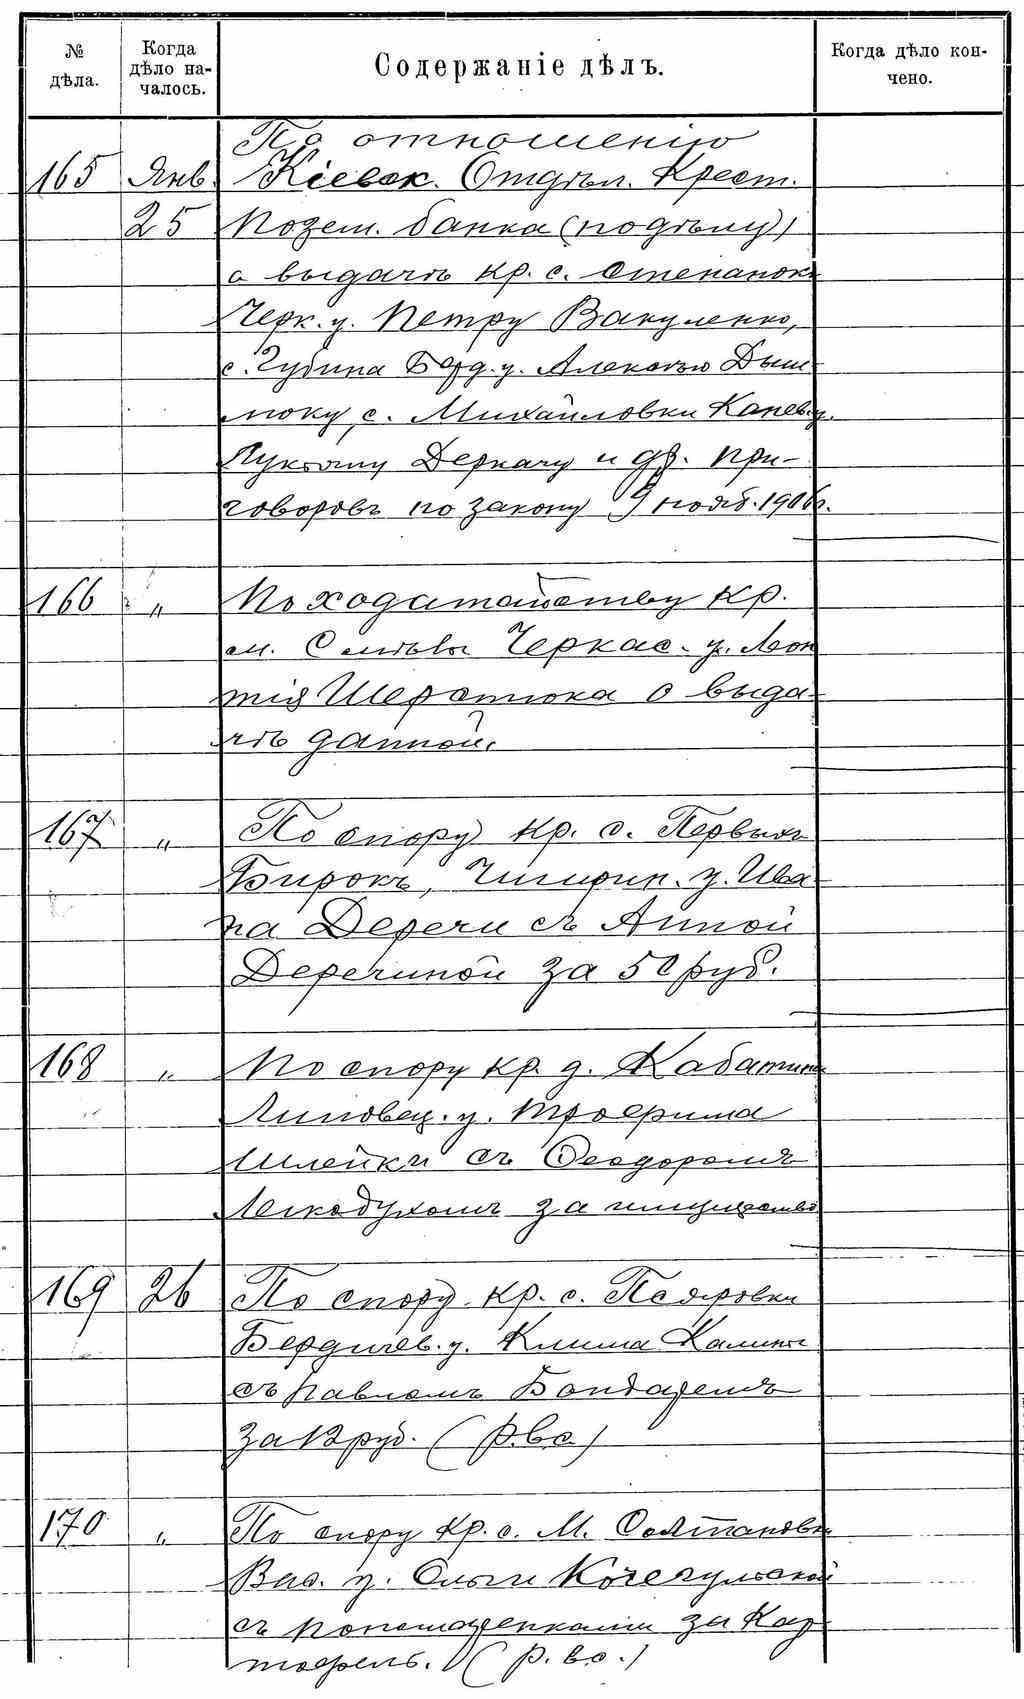 № дѣла.
Когда дѣло на-
чалось.
Содержаніе дѣлъ.
Когда дѣло кон-
чено.
По отношенію
165 Янв. Кіевск. Отдѣл. Крест.
25 Позем. банка (по дѣлу)
о выдачѣ кр. с. Степанок
Черк. у. Петру Вакуленко,
с. Губина Берд. у. Алексѣю Дыш-
люку, с. Михайловки Канев. у.
Лукьяну Деркачу и др. при-
говоровъ по закону 9 нояб. 1906 г.
166 „ По ходатайству кр.
м. Смѣлы Черкас. у. Леон
тія Шерстюка о выда-
чѣ данной.
167 „ По спору кр. с. Первыхъ
Бирокъ, Чигирин. у. Ива-
на Деречи съ Анной
Деречиной за 50 руб.
168 „ По спору кр. д.
Липовец. у. Трофима
Шлейки съ Феодоромъ
Легкодухомъ за имущество
169 26 По спору кр. с. Псяровки
Бердичев. у. Клима
съ Павломъ Бондаремъ
за 12 руб. (Р. в. с.)
170 „ По спору кр. с. М. Солтановки
Вас. у. Ольги
съ Пономаренками за Кар
тофель. (Р. в. с.)